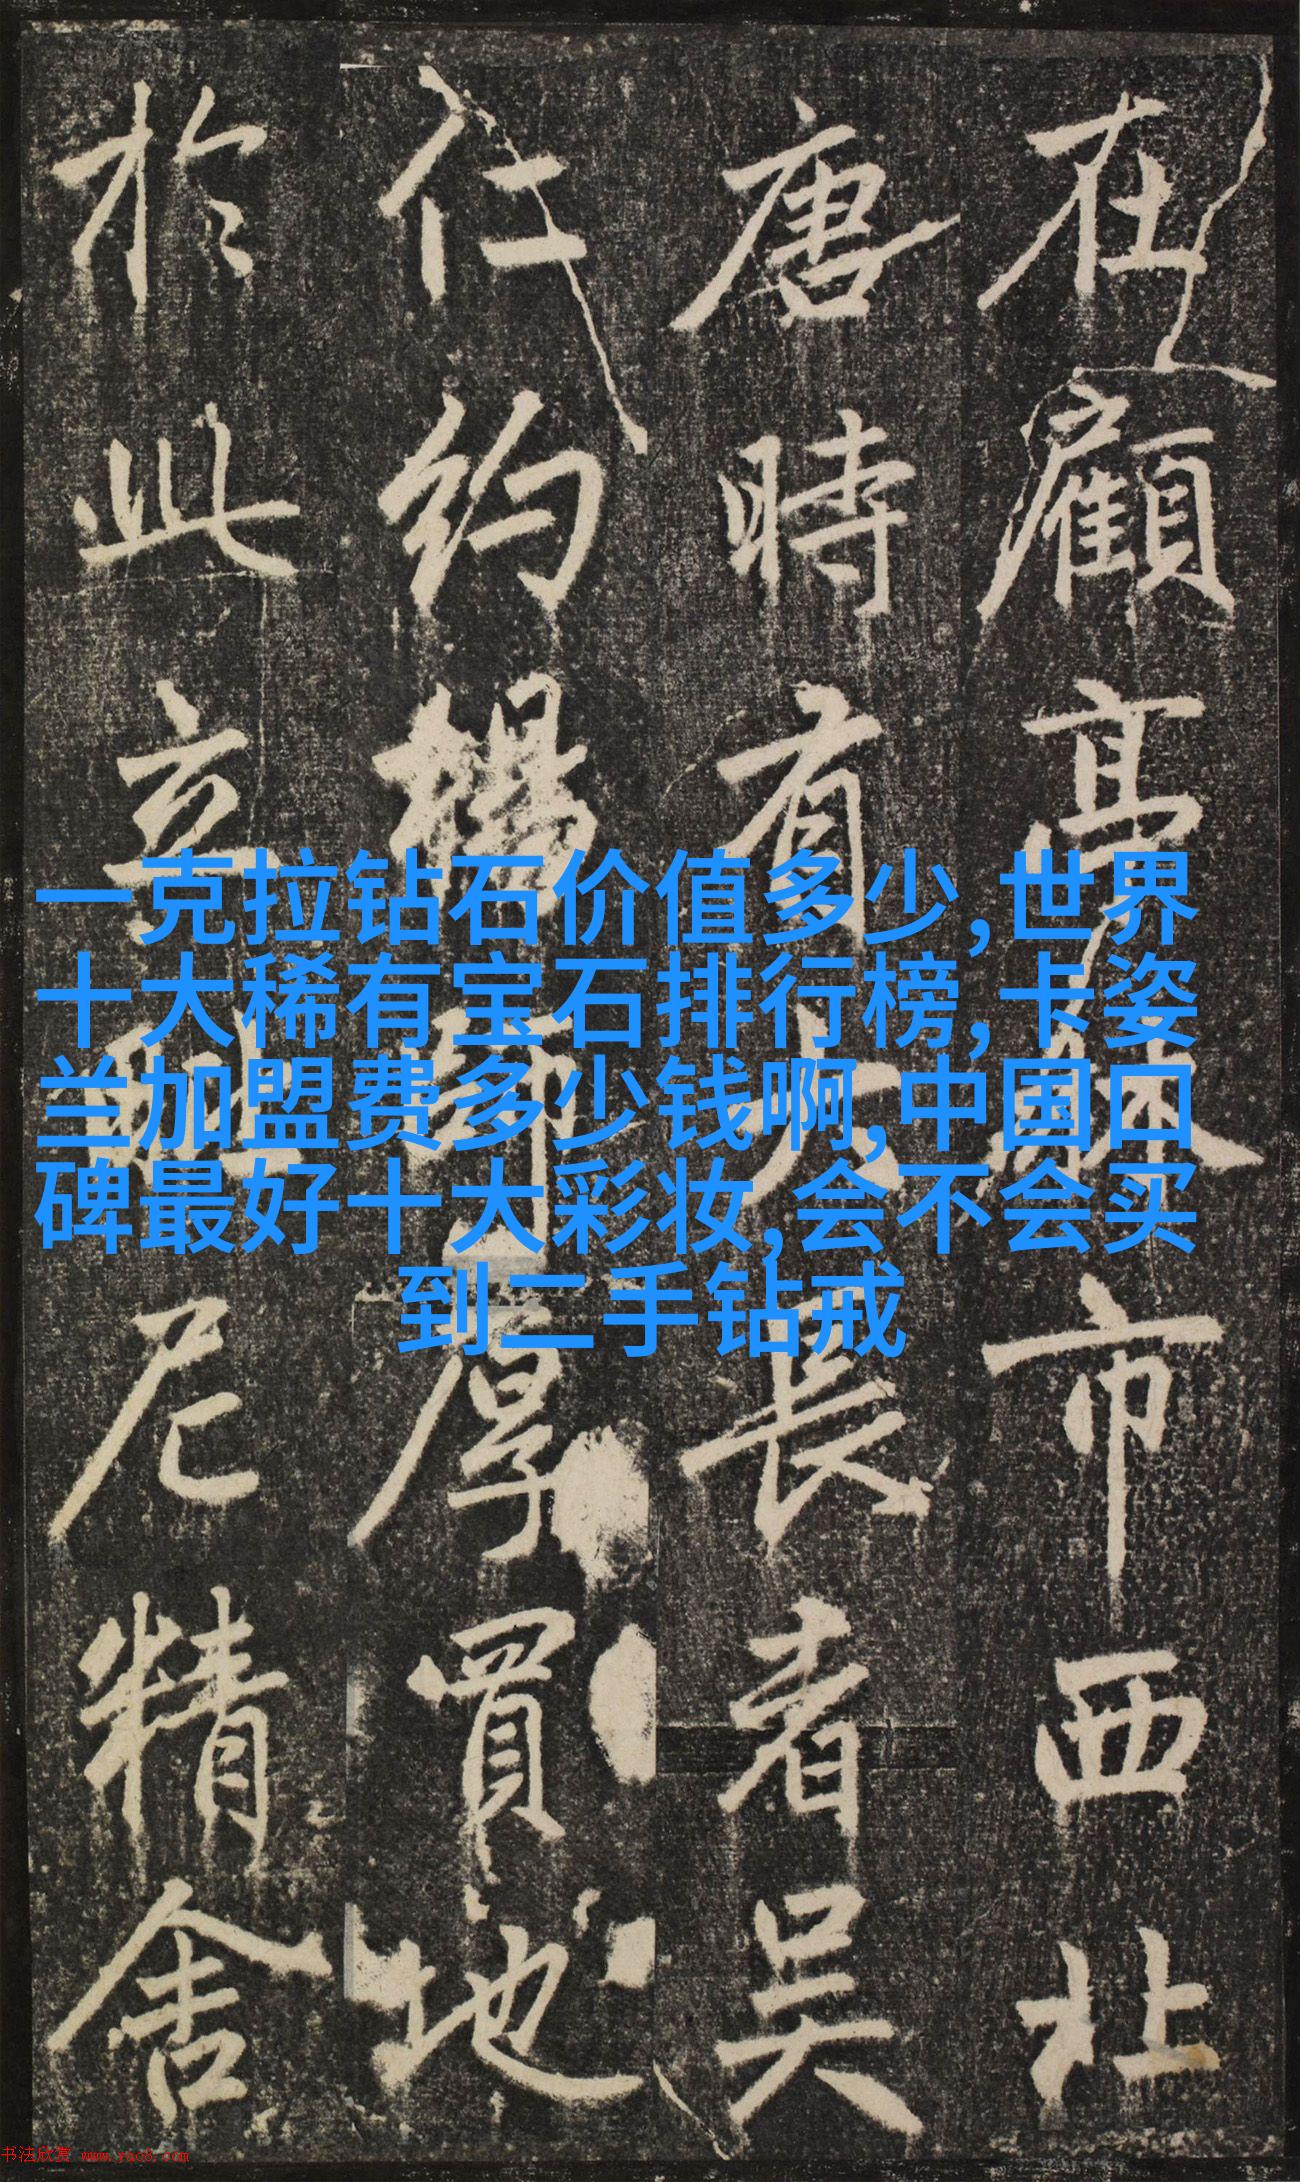 在顧亭林市西北
唐時有大長者吳
仁約厚買地
於此立尼精舍
一克拉钻石价值多少,世界
十大稀有宝石排行榜,卡姿
兰加盟费多少钱啊,中国口
碑最好十大彩妆,会不会买
到二手钻戒
书法欣赏 www.yac8.com